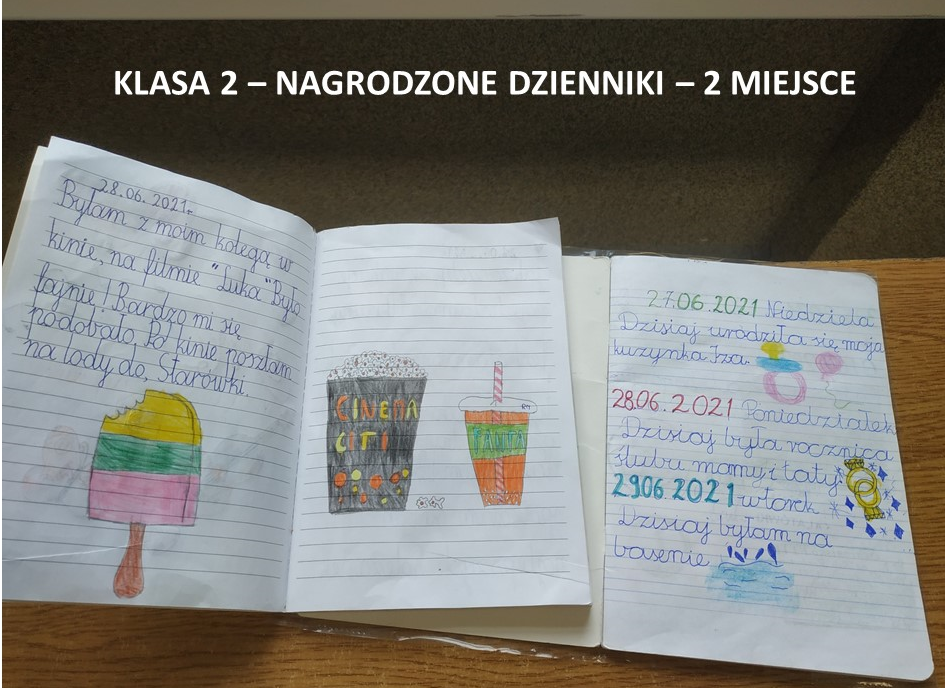 KLASA 2 – NAGRODZONE DZIENNIKI – 2 MIEJSCE
28.06.2021r.
Byłam z moim kolegą w
kinie, na filmie "Luka" Było
fajnie! Bardzo mi się
podobało. Po kinie poszłam
na lody do, Starówki.
CINEMA
CITI
FANTA
27.06.2021 Niedziela
Dzisiaj urodziła się moja
kuzynka Iza.
28.06.2021 Poniedziałek
Dzisiaj była rocznica
ślubu mamy i taty.
29.06 2021 wtorek
Dzisiaj byłam na
basenie